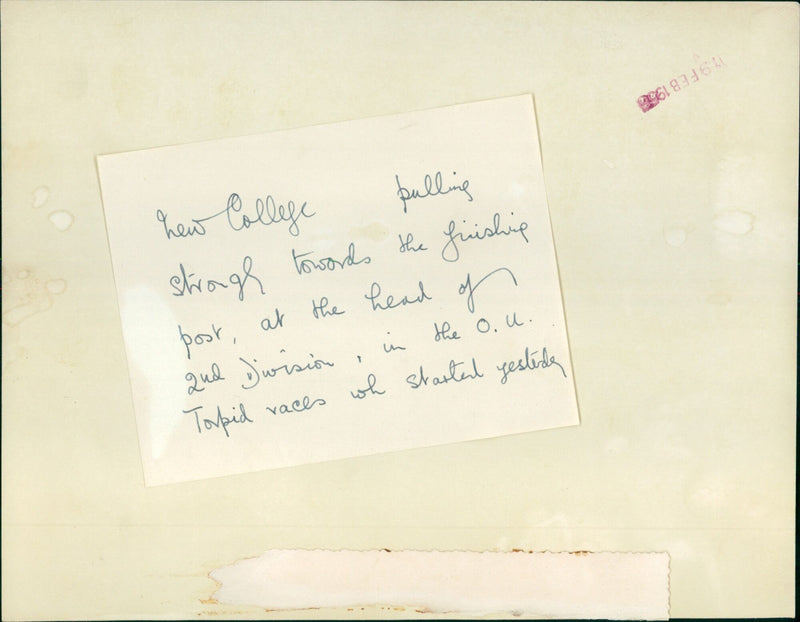 New College pulling
strongly towards the finishing
post, at the head of
2nd Division, in the O. U.
Torpid races wh started yesterday
9 FEB 19